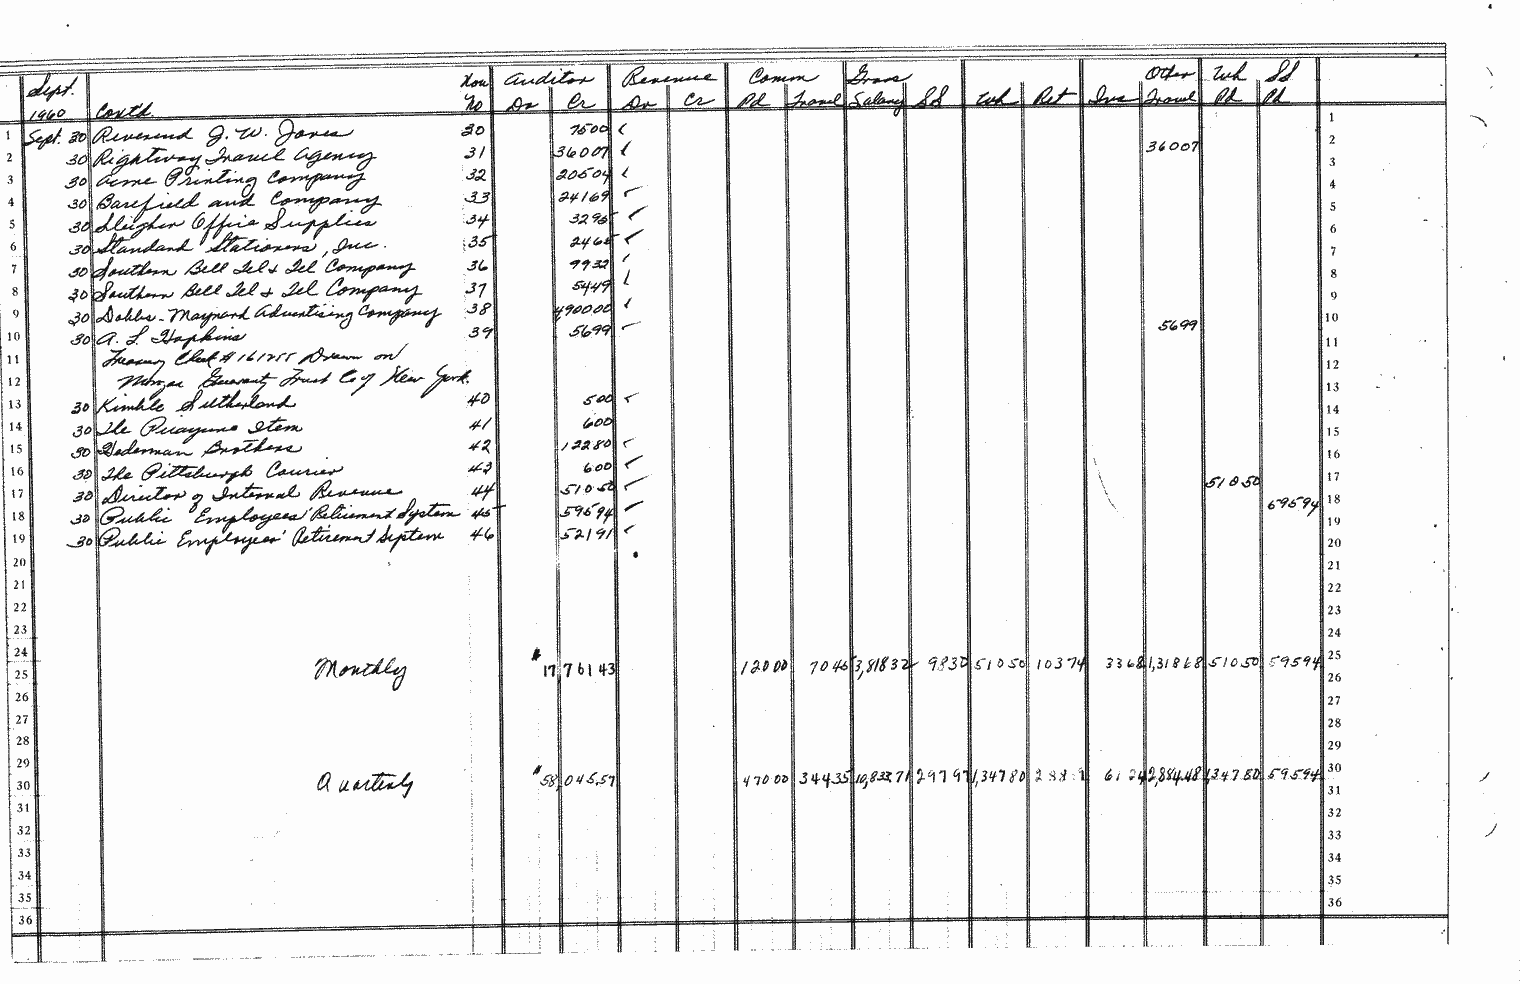 Sept. Auditor Revenue Comm Gross Other Wh SS
1960 Contd. No Dr Cr Dr Cr Pd Travel Salary SS Wh Ret Ins Travel Pd Pd
1 Sept. 30 Reverend J. W. Jones 30 7500 1
2 30 Rightway Travel Agency 31 36007 36007 2
3 30 Acme Printing Company 32 20504 3
4 30 Barefield and Company 33 24169 4
5 30 Office Supplies 34 3295 5
6 30 Standard Stationers, Inc. 35 2465 6
7 30 Southern Bell Tel & Tel Company 36 9932 7
8 30 Southern Bell Tel & Tel Company 37 5449 8
9 30 Dobbs-Maynard Advertising Company 38 490000 9
10 30 A. L. Hopkins 39 5699 5699 10
11 Treasury Check # 161255 Drawn on 11
12 Morgan Guaranty Trust Co of New York. 12
13 30 Kimble Sutherland 40 500 13
14 30 The Picayune Item 41 600 14
15 30 Hederman Brothers 42 12280 15
16 30 The Pittsburgh Courier 43 600 16
17 30 Director of Internal Revenue 44 51050 51050 17
18 30 Public Employees' Retirement System 45 59594 59594 18
19 30 Public Employees' Retirement System 46 52191 19
20 20
21 21
22 22
23 23
24 24
25 Monthly 17,76143 12000 7045 3,81832 9832 51050 10374 3368 1,31868 51050 59594 25
26 26
27 27
28 28
29 29
30 Quarterly 58,045.57 47000 34435 10,833.71 29797 1,34780 2,884.48 1,34780 59594 30
31 31
32 32
33 33
34 34
35 35
36 36